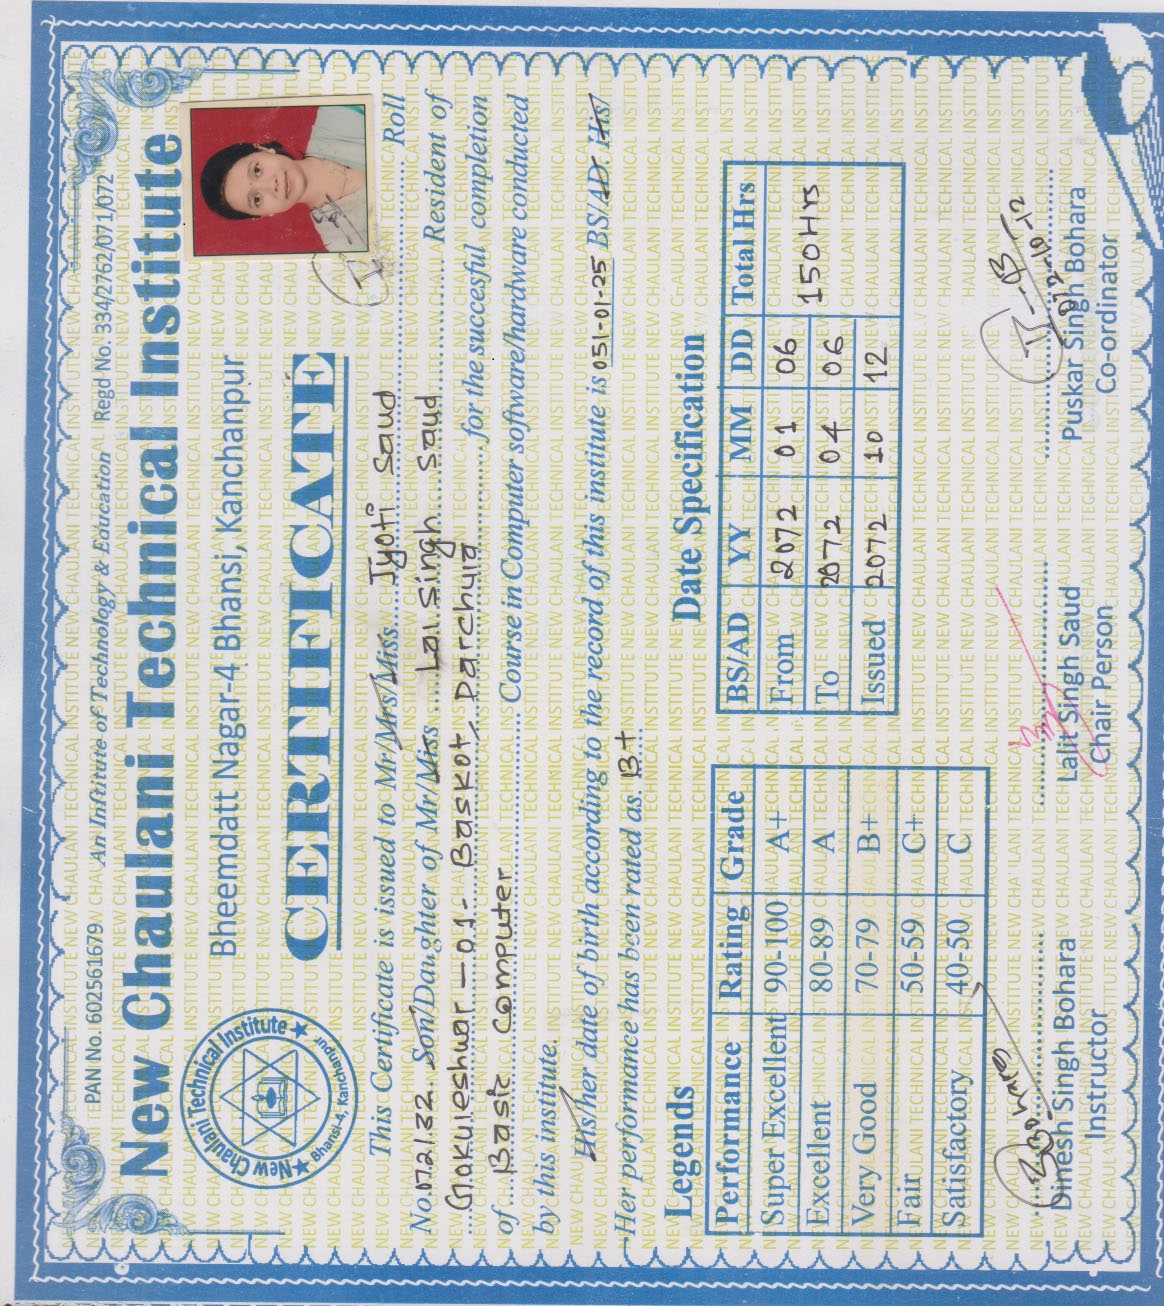 PAN No. 602561679 An Institute of Technology & Education Regd No. 334/2762/071/072
New Chaulani Technical Institute
Bheemdatt Nagar-4 Bhansi, Kanchanpur
New Chaulani Technical Institute
Bhansi-4, Kanchanpur
CERTIFICATE
This Certificate is issued to Mr/Mrs/Miss Jyoti Saud Roll
No. 072132 Son/Daughter of Mr/Miss Lal Singh Saud Resident of
Gokuleshwar-01- Baskot, Darchula for the succesful completion
of Basic Computer Course in Computer software/hardware conducted
by this institute.
His/her date of birth according to the record of this institute is 051-01-25 BS/AD. His/
Her performance has been rated as. B+
Legends
Performance Rating Grade
Super Excellent 90-100 A+
Excellent 80-89 A
Very Good 70-79 B+
Fair 50-59 C+
Satisfactory 40-50 C
Date Specification
BS/AD YY MM DD Total Hrs
From 2072 01 06 150Hrs
To 2072 04 06
Issued 2072 10 12
Dinesh Singh Bohara
Instructor
Lalit Singh Saud
Chair Person
072-10-12
Puskar Singh Bohara
Co-ordinator
NEW CHAULANI TECHNICAL INSTITUTE